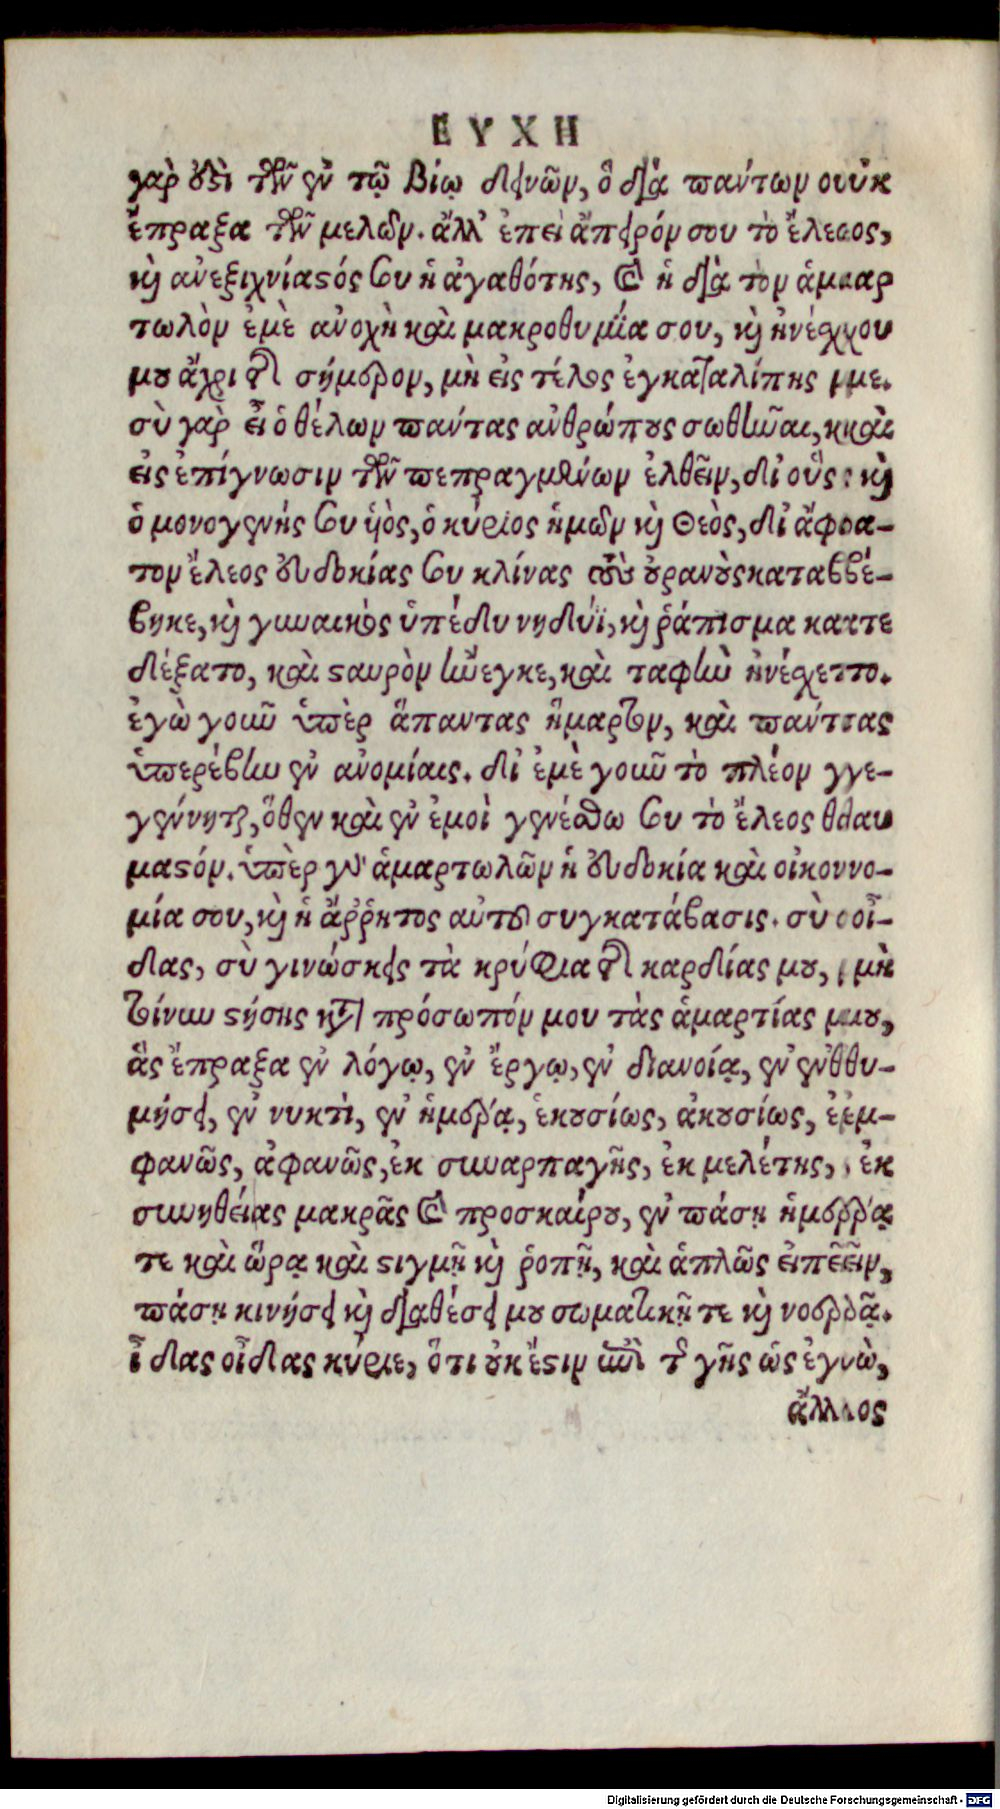 ΕΥΧΗ
γὰρ ἐστὶ τῶν ἐν τῷ βίῳ δεινῶν, ὃ διὰ πάντων οὐκ
ἔπραξα τῶν μελῶν. ἀλλ' ἐπεὶ ἄπειρόν σου τὸ ἔλεος,
καὶ ἀνεξιχνίαστός σου ἡ ἀγαθότης, καὶ ἡ διὰ τὸν ἁμαρ
τωλὸν ἐμὲ ἀνοχὴ καὶ μακροθυμία σου, καὶ ἠνέσχου
μου ἄχρι τῆς σήμερον, μὴ εἰς τέλος ἐγκαταλίπῃς με.
σὺ γὰρ εἶ ὁ θέλων πάντας ἀνθρώπους σωθῆναι, καὶ
εἰς ἐπίγνωσιν τῶν πεπραγμένων ἐλθεῖν, δι' οὓς καὶ
ὁ μονογενής σου υἱὸς, ὁ κύριος ἡμῶν καὶ Θεὸς, δι' ἄφα-
τον ἔλεος εὐδοκίας σου κλίνας τοὺς οὐρανοὺς καταβέ-
βηκε, καὶ γυναικὸς ὑπέδυ νηδύϊ, καὶ ῥάπισμα κατε
δέξατο, καὶ σταυρὸν ἤνεγκε, καὶ ταφὴν ἠνέσχετο.
ἐγὼ γοῦν ὑπὲρ ἅπαντας ἥμαρτον, καὶ πάντας
ὑπερέβην ἐν ἀνομίαις. δι' ἐμὲ γοῦν τὸ πλέον γε-
γέννηται, ὅθεν καὶ ἐν ἐμοὶ γενέσθω σου τὸ ἔλεος θαυ
μαστόν. ὑπὲρ γὰρ ἁμαρτωλῶν ἡ εὐδοκία καὶ οἰκονο-
μία σου, καὶ ἡ ἄῤῥητος αὐτοῦ συγκατάβασις. σὺ οἶ-
δας, σὺ γινώσκεις τὰ κρύφια τῆς καρδίας μου, μὴ
τοίνυν στήσῃς κατὰ πρόσωπόν μου τὰς ἁμαρτίας μου,
ἃς ἔπραξα ἐν λόγῳ, ἐν ἔργῳ, ἐν διανοίᾳ, ἐν ἐνθυ-
μήσει, ἐν νυκτὶ, ἐν ἡμέρᾳ, ἑκουσίως, ἀκουσίως, ἐμ-
φανῶς, ἀφανῶς, ἐκ συναρπαγῆς, ἐκ μελέτης, ἐκ
συνηθείας μακρᾶς καὶ προσκαίρου, ἐν πάσῃ ἡμέρᾳ
τε καὶ ὥρᾳ καὶ στιγμῇ καὶ ῥοπῇ, καὶ ἁπλῶς εἰπεῖν,
πάσῃ κινήσει καὶ διαθέσει μου σωματικῇ τε καὶ νοερᾷ.
οἶδας οἶδας κύριε, ὅτι οὐκ ἔστιν ἐπὶ τῆς γῆς ὡς ἐγὼ,
ἄλλος
Digitalisierung gefördert durch die Deutsche Forschungsgemeinschaft - DFG